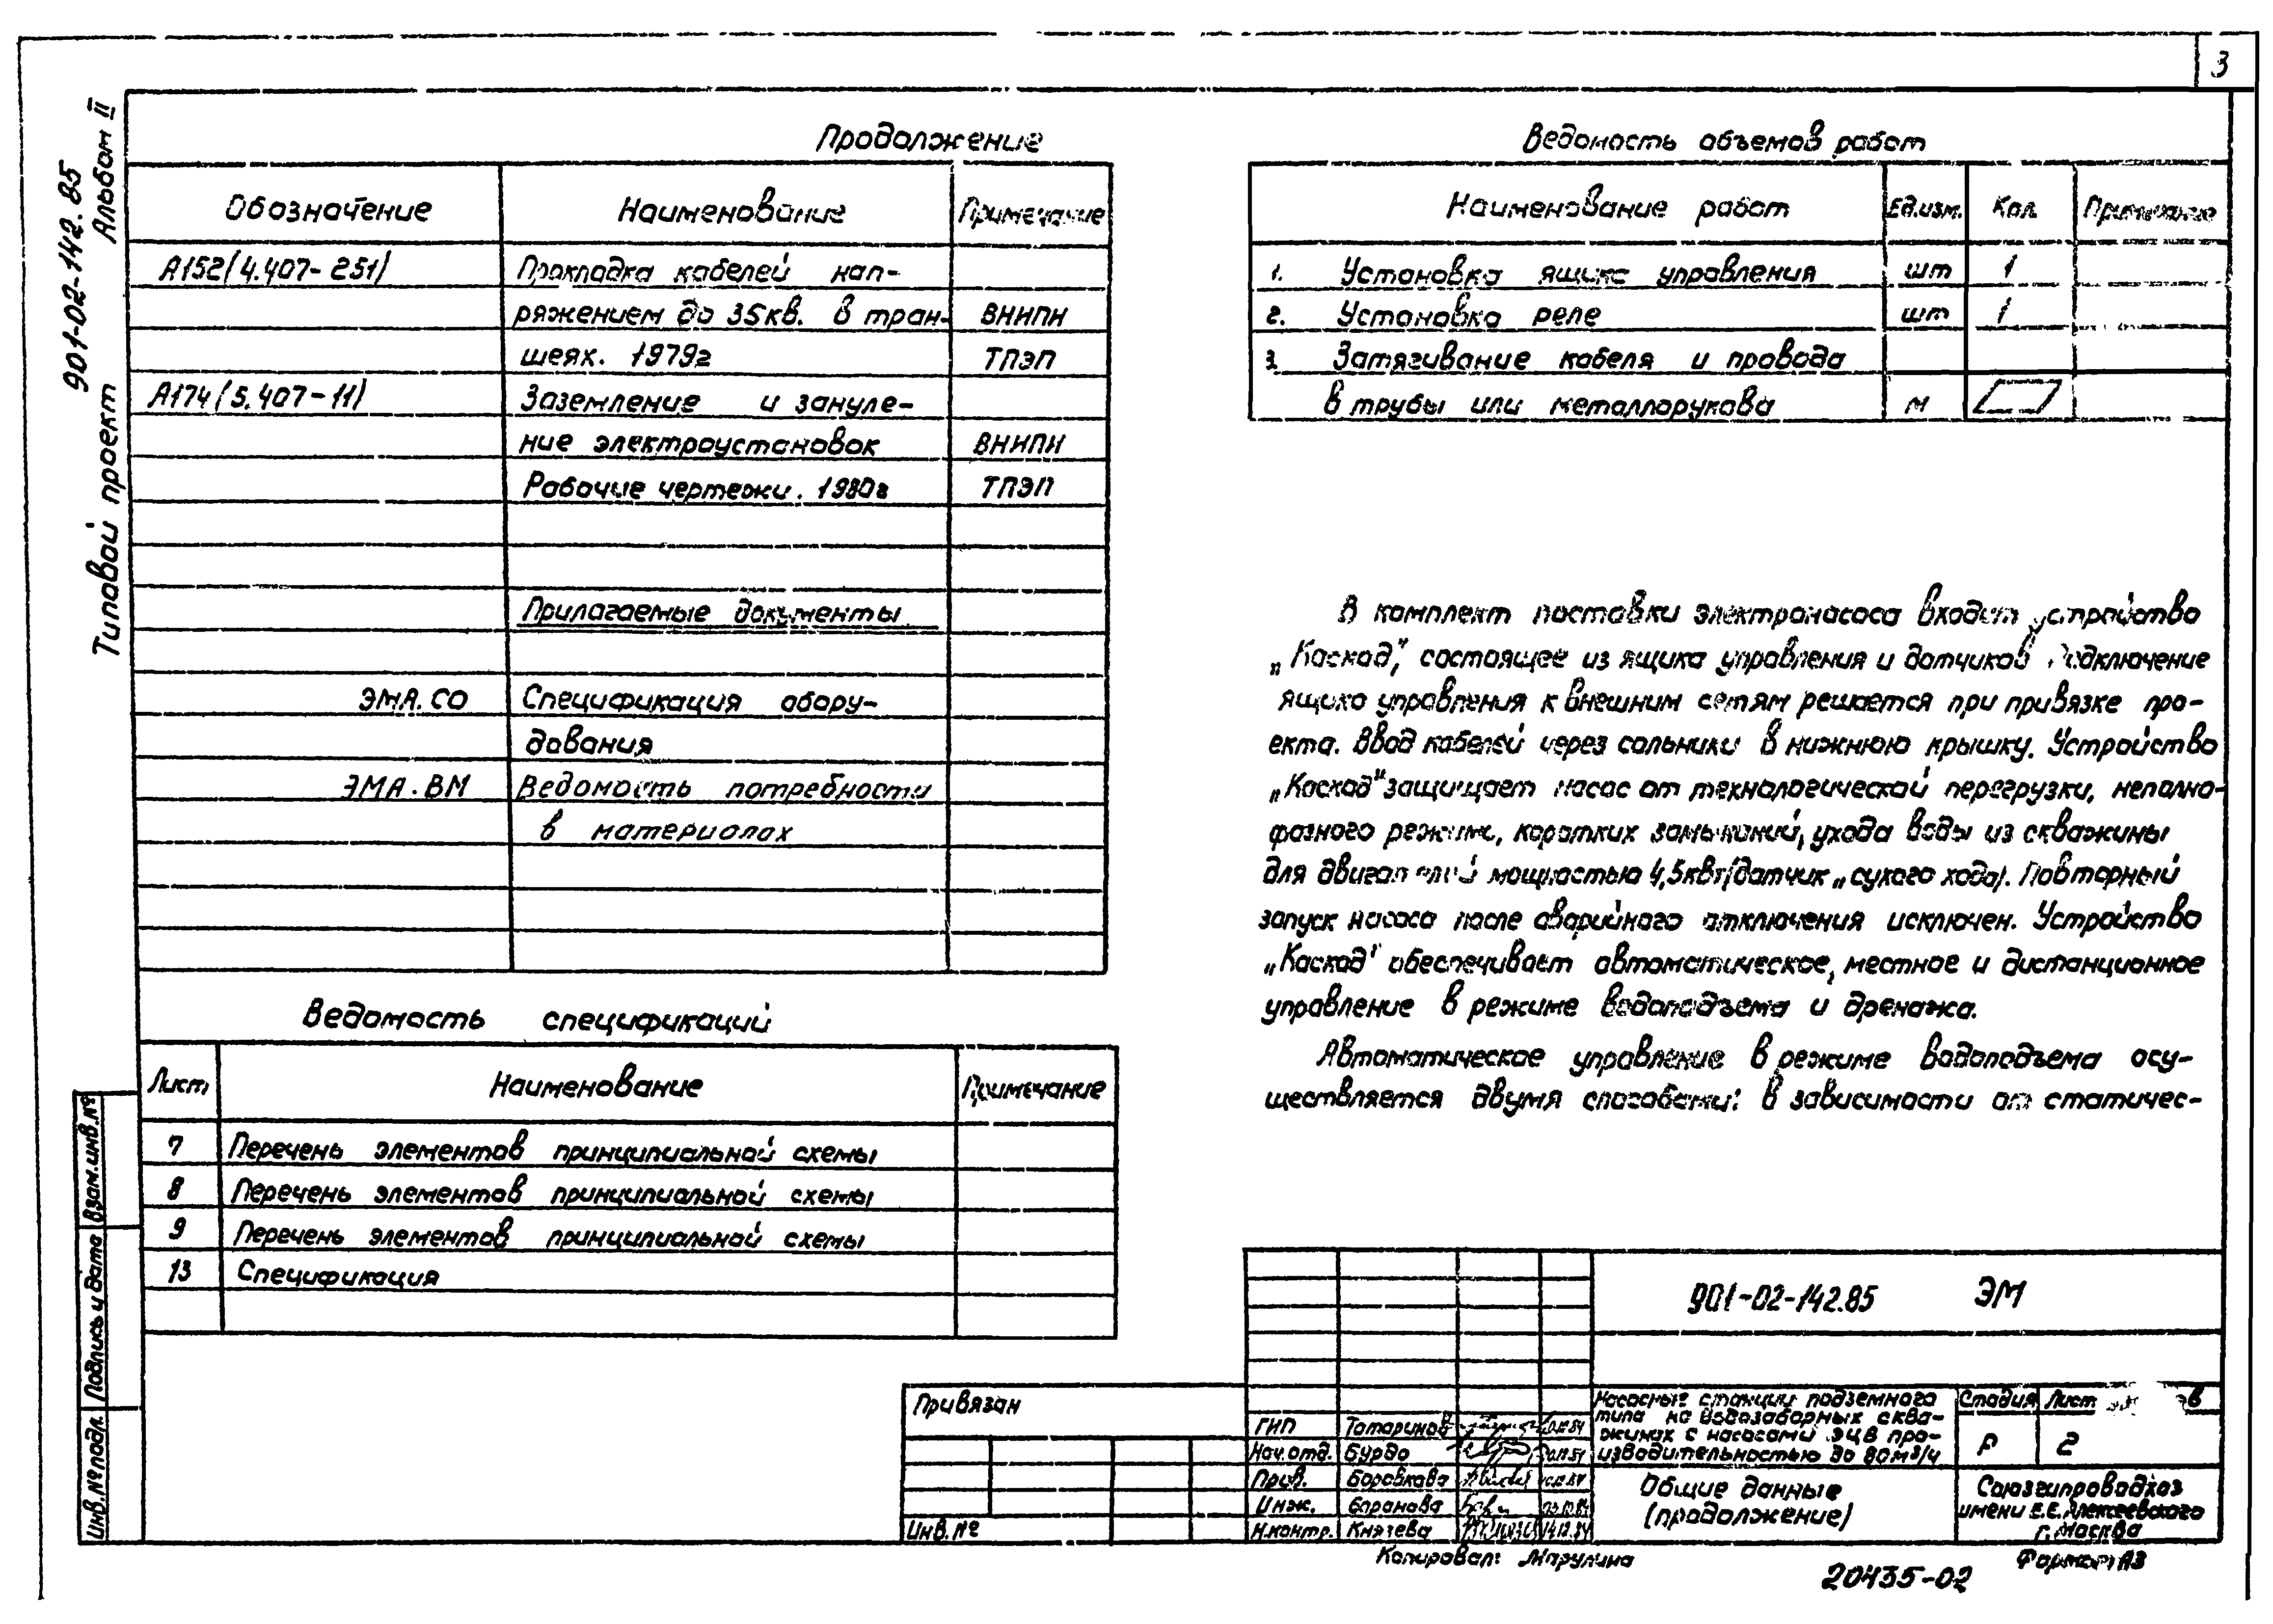 3
Типовой проект 901-02-142.85 Альбом II
Продолжение
Обозначение Наименование Примечание
А152/4.407-251/ Прокладка кабелей нап-
ряжением до 35кв. в тран- ВНИПИ
шеях. 1979г ТПЭП
А174/5.407-11/ Заземление и зануле-
ние электроустановок ВНИПИ
Рабочие чертежи. 1980г ТПЭП
Прилагаемые документы
ЭМА.СО Спецификация обору-
дования
ЭМА.ВМ Ведомость потребности
в материалах
Ведомость спецификаций
Лист Наименование Примечание
7 Перечень элементов принципиальной схемы
8 Перечень элементов принципиальной схемы
9 Перечень элементов принципиальной схемы
13 Спецификация
Ведомость объемов работ
Наименование работ Ед.изм. Кол. Примечание
1. Установка ящика управления шт 1
2. Установка реле шт 1
3. Затягивание кабеля и провода
в трубы или металлорукова м
В комплект поставки электронасоса входит устройство
„Каскад“, состоящее из ящика управления и датчиков Подключение
ящика управления к внешним сетям решается при привязке про-
екта. Ввод кабелей через сальники в нижнюю крышку. Устройство
„Каскад“ защищает насос от технологической перегрузки, неполно-
фазного режима, коротких замыканий, ухода воды из скважины
для двигателей мощностью 4,5квт/датчик „сухого хода/. Повторный
запуск насоса после аварийного отключения исключен. Устройство
„Каскад“ обеспечивает автоматическое, местное и дистанционное
управление в режиме водоподъема и дренажа.
Автоматическое управление в режиме водоподъема осу-
ществляется двумя способами: в зависимости от статичес-
Взам.инв.№
Подпись и дата
Инв.№подл.
Привязан
Инв.№
901-02-142.85 ЭМ
ГИП Татаринов
Нач.отд. Бурдо
Пров. Боровкова
Инж. Баранова
Н.контр. Князева
Насосные станции подземного
типа на водозаборных сква-
жинах с насосами ЭЦВ про-
изводительностью до 80м3/ч
Стадия Лист
Р 2
Общие данные
(продолжение)
Союзгипроводхоз
имени Е.Е.Алексеевского
г.Москва
Копировал: Марулина
20435-02
Формат А3